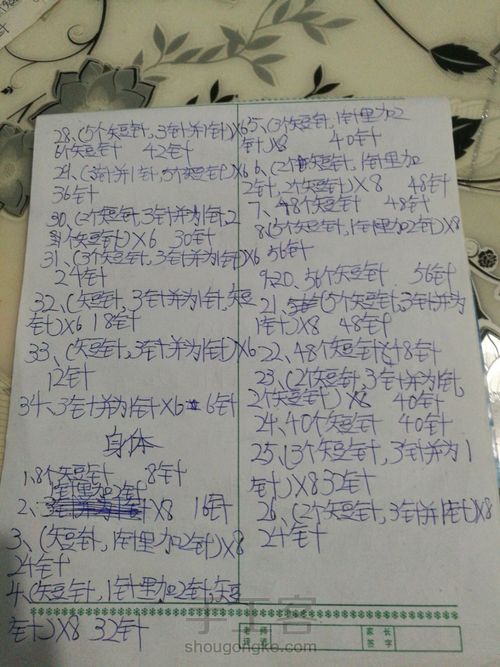 28、(5个短针,3针并1针)X6
6个短针 42针
29、(3针并1针,5个短针)X6
36针
30、(2个短针,3针并为1针,2
个短针)X6 30针
31、(3个短针,3针并为1针)X6
24针
32、(短针,3针并为1针,短
针)X6 18针
33、(短针,3针并1针)X6
12针
34、3针并为1针X6 6针
身体
1、8个短针 8针
1针里加2针
2、X8 16针
3、(短针,1针里加2针)X8
24针
4、(短针,1针里加2针,短
针)X8 32针
5、(3个短针,1针里加2
针)X8 40针
6、(2个短针,1针里加
2针,2个短针)X8 48针
7、48个短针 48针
8、(5个短针,1针里加2针)X8
56针
9-20、56个短针 56针
21、(5个短针,3针并为
1针)X8 48针
22、48个短针48针
23、(2个短针,3针并为1针,
2个短针)X8 40针
24、40个短针 40针
25、(3个短针,3针并为1
针)X8 32针
26、(2个短针,3针并1针)X8
24针
老师
评语
家长
签字
手工客
shougongke.com